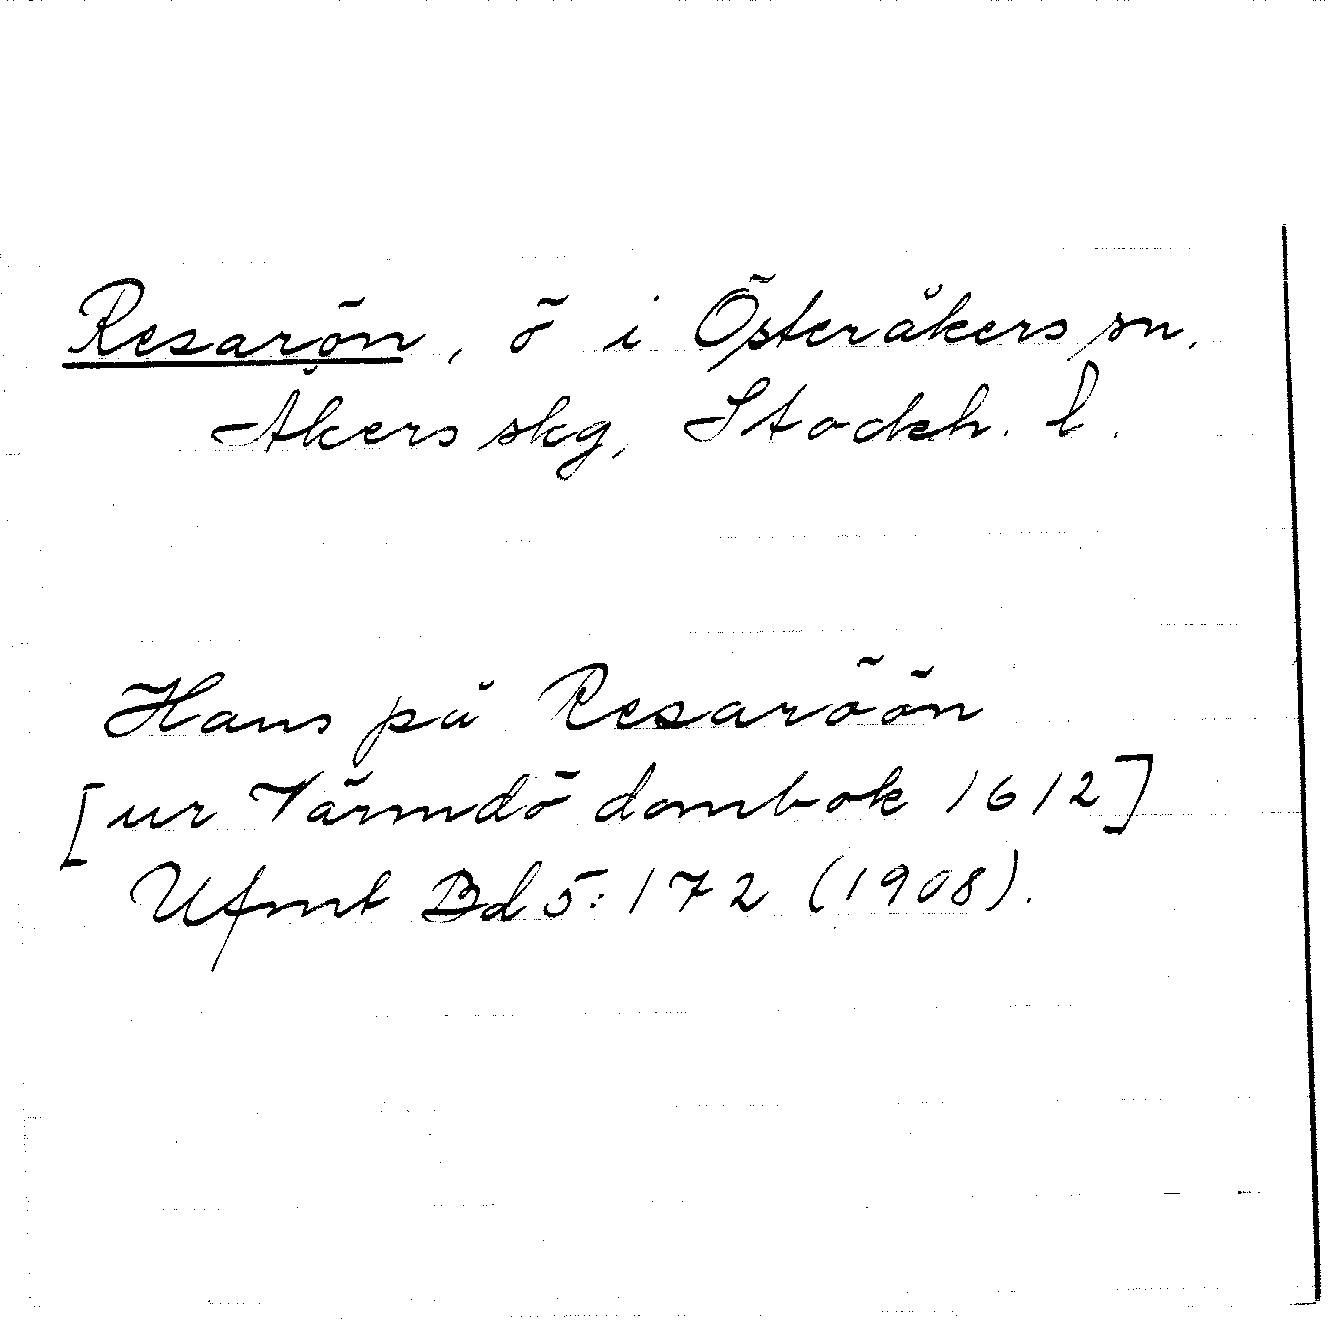 Resarön, ö i Österåkers sn,
Åkers skg, Stockh. l.
Hans på Resaröön
[ur Värmdö dombok 1612]
Ufmt Bd 5: 172 (1908).